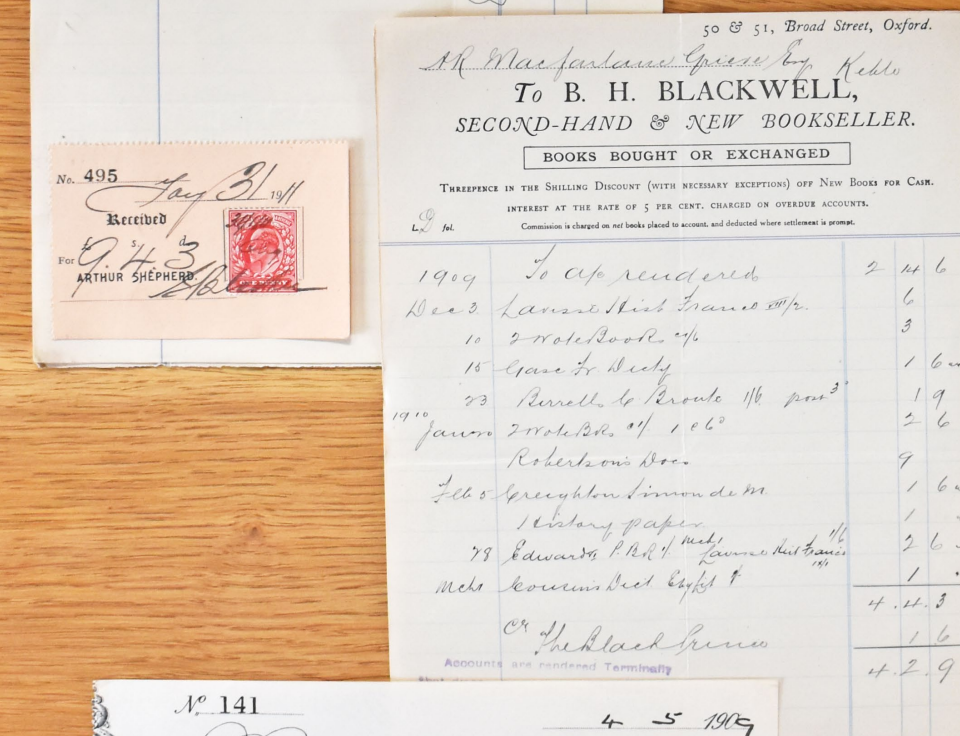 50 & 51, Broad Street, Oxford.
AR Macfarlane Grieve Esq Keble
To B. H. BLACKWELL,
SECOND-HAND & NEW BOOKSELLER.
BOOKS BOUGHT OR EXCHANGED
THREEPENCE IN THE SHILLING DISCOUNT (WITH NECESSARY EXCEPTIONS) OFF NEW BOOKS FOR CASH.
INTEREST AT THE RATE OF 5 PER CENT. CHARGED ON OVERDUE ACCOUNTS.
L. D fol. Commission is charged on net books placed to account, and deducted where settlement is prompt.
1909 To a/c rendered 2 14 6
Dec 3 Lavisse Hist France VIII/2. 6
10 2 Note Books 3
15 Gasc Fr Dicty 1 6
23 Birrells C Bronte 1/6 post 3d 1 9
1910
Jan 20 2 Note Bks 2 6
Robertson's Docs 9
Feb 5 Creighton Simon de M 1 6
History paper 1
28 Edwards Lavisse Hist France 1/6 2 6
Mch 1 Cousins Dict 1
4.4.3
cr The Black Prince 1 6
4.2.9
Accounts are rendered Terminally
No. 495
Jany 31 1911
Received
£ s d
For 9.4.3
ARTHUR SHEPHERD.
ONE PENNY
No. 141
4 5 1909